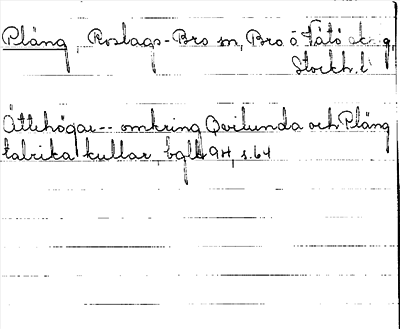 Pläng, Roslags-Bro sn, Bro ö Vätö skg,
Stockh. l
Ättehögar-- omkring Qvilunda och Pläng
talrika kullar, bgl 94, s. 64